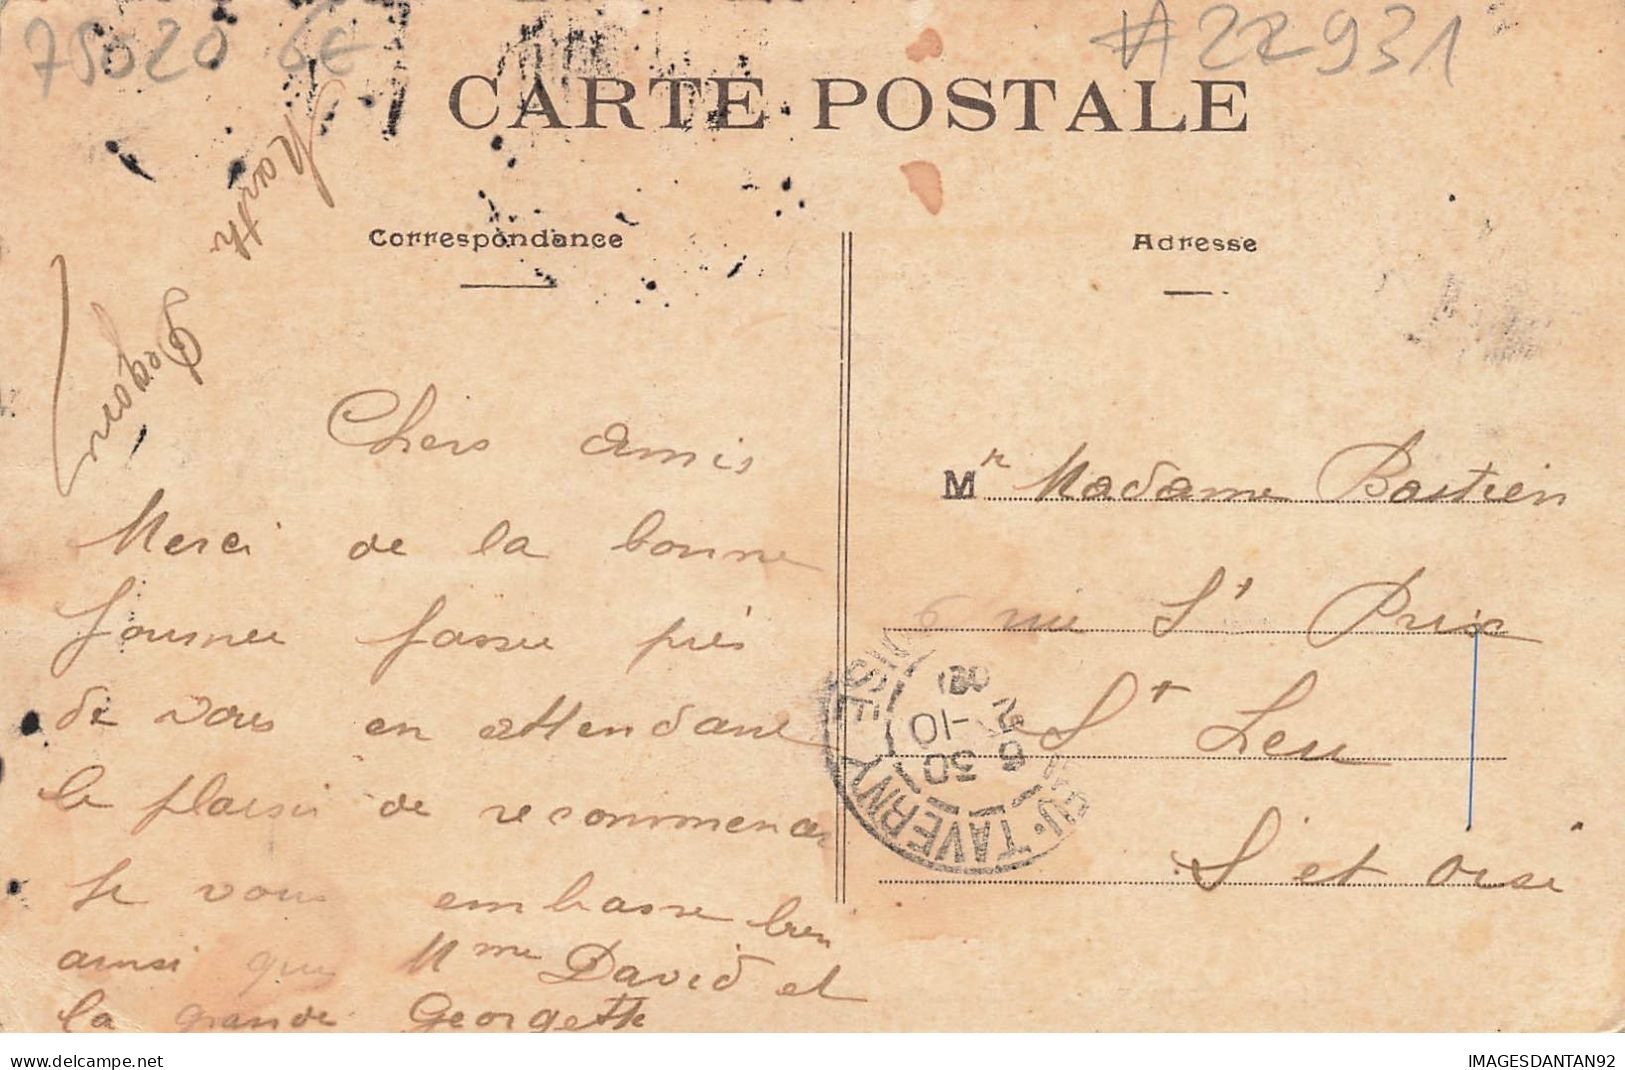 75020 6€
#22931
CARTE POSTALE
Correspondance
Adresse
Chers amis
Merci de la bonne
journee passee près
de vous en attendant
le plaisir de recommencer
Je vous embrasse bien
ainsi que Mme David et
la grande Georgette
Mr Madame Bastien
6 rue St Prix
St Leu
S et oise
TAVERNY
6 30
-10
Cliquez sur l'image pour zoomer
IMAGESDANTAN92